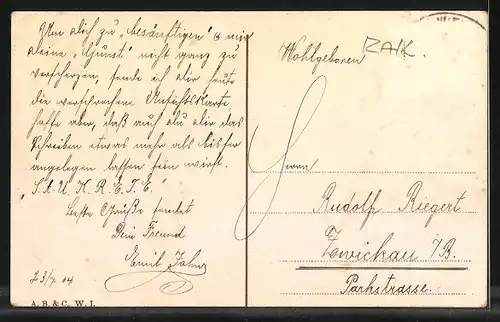 Um Dich zu "besänftigen" & mir
Deine "Gunst" nicht ganz zu
verscherzen, sende ich Dir heute
die versprochene Ansichtskarte,
hoffe aber, daß auch Du Dir das
Schreiben etwas mehr als bisher
angelegen lassen sein wirst.
"S. A. U. H. R. E. T. E."
Beste Grüße sendet
Dein Freund
Emil Jahn
23/7 04
A. B. & C. W. I.
Wohlgeboren
Herrn
Rudolf Riegert
Zwickau i/B.
Parkstrasse.